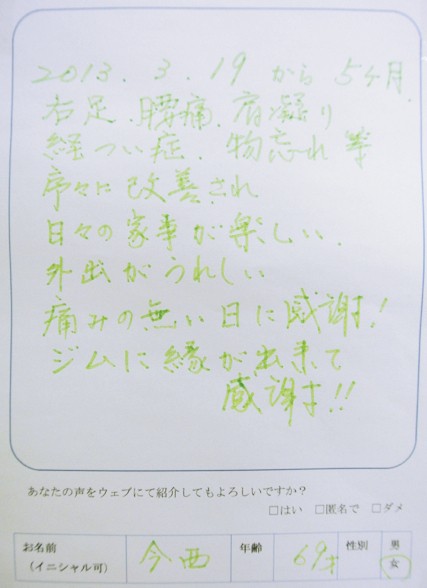 2013.3.19から5ヶ月.
右足.腰痛.肩凝り
経つい症.物忘れ等
序々に改善され
日々の家事が楽しい.
外出がうれしい
痛みの無い日に感謝!
ジムに縁が出来て
感謝す!!
あなたの声をウェブにて紹介してもよろしいですか?
□はい □匿名で □ダメ
お名前 今西 年齢 69才 性別 男
(イニシャル可) 女